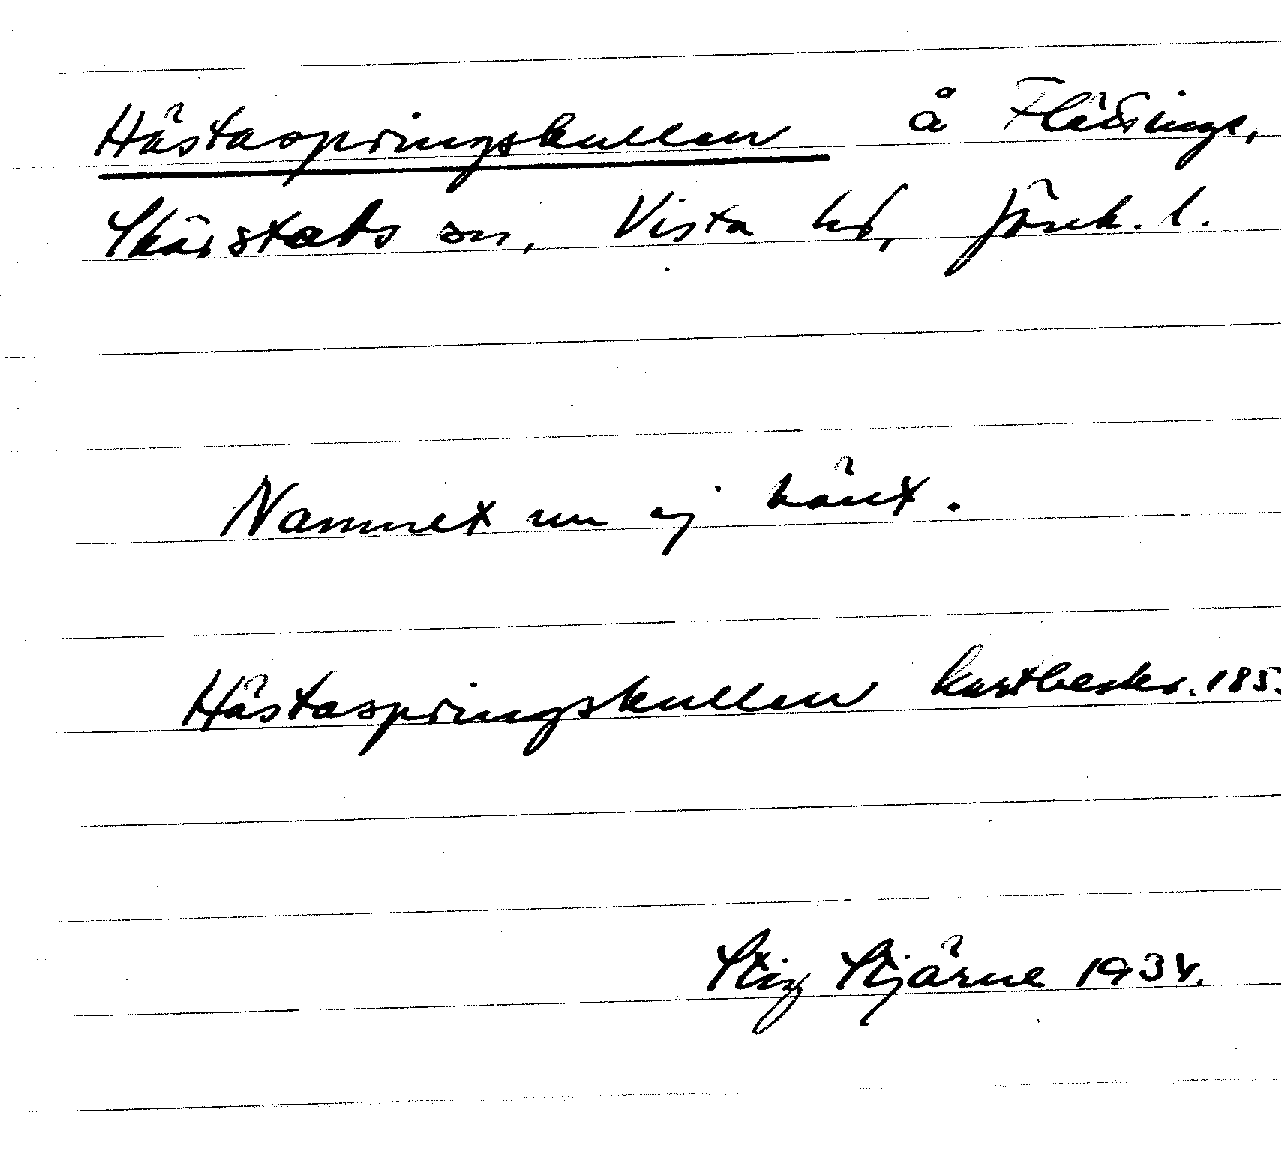 Hästaspringskullen å Flädinge,
Skärstads sn, Vista hd, Jönk. l.
Namnet nu ej känt.
Hästaspringskullen kartbeskr. 185
Stig Stjärne 1934.